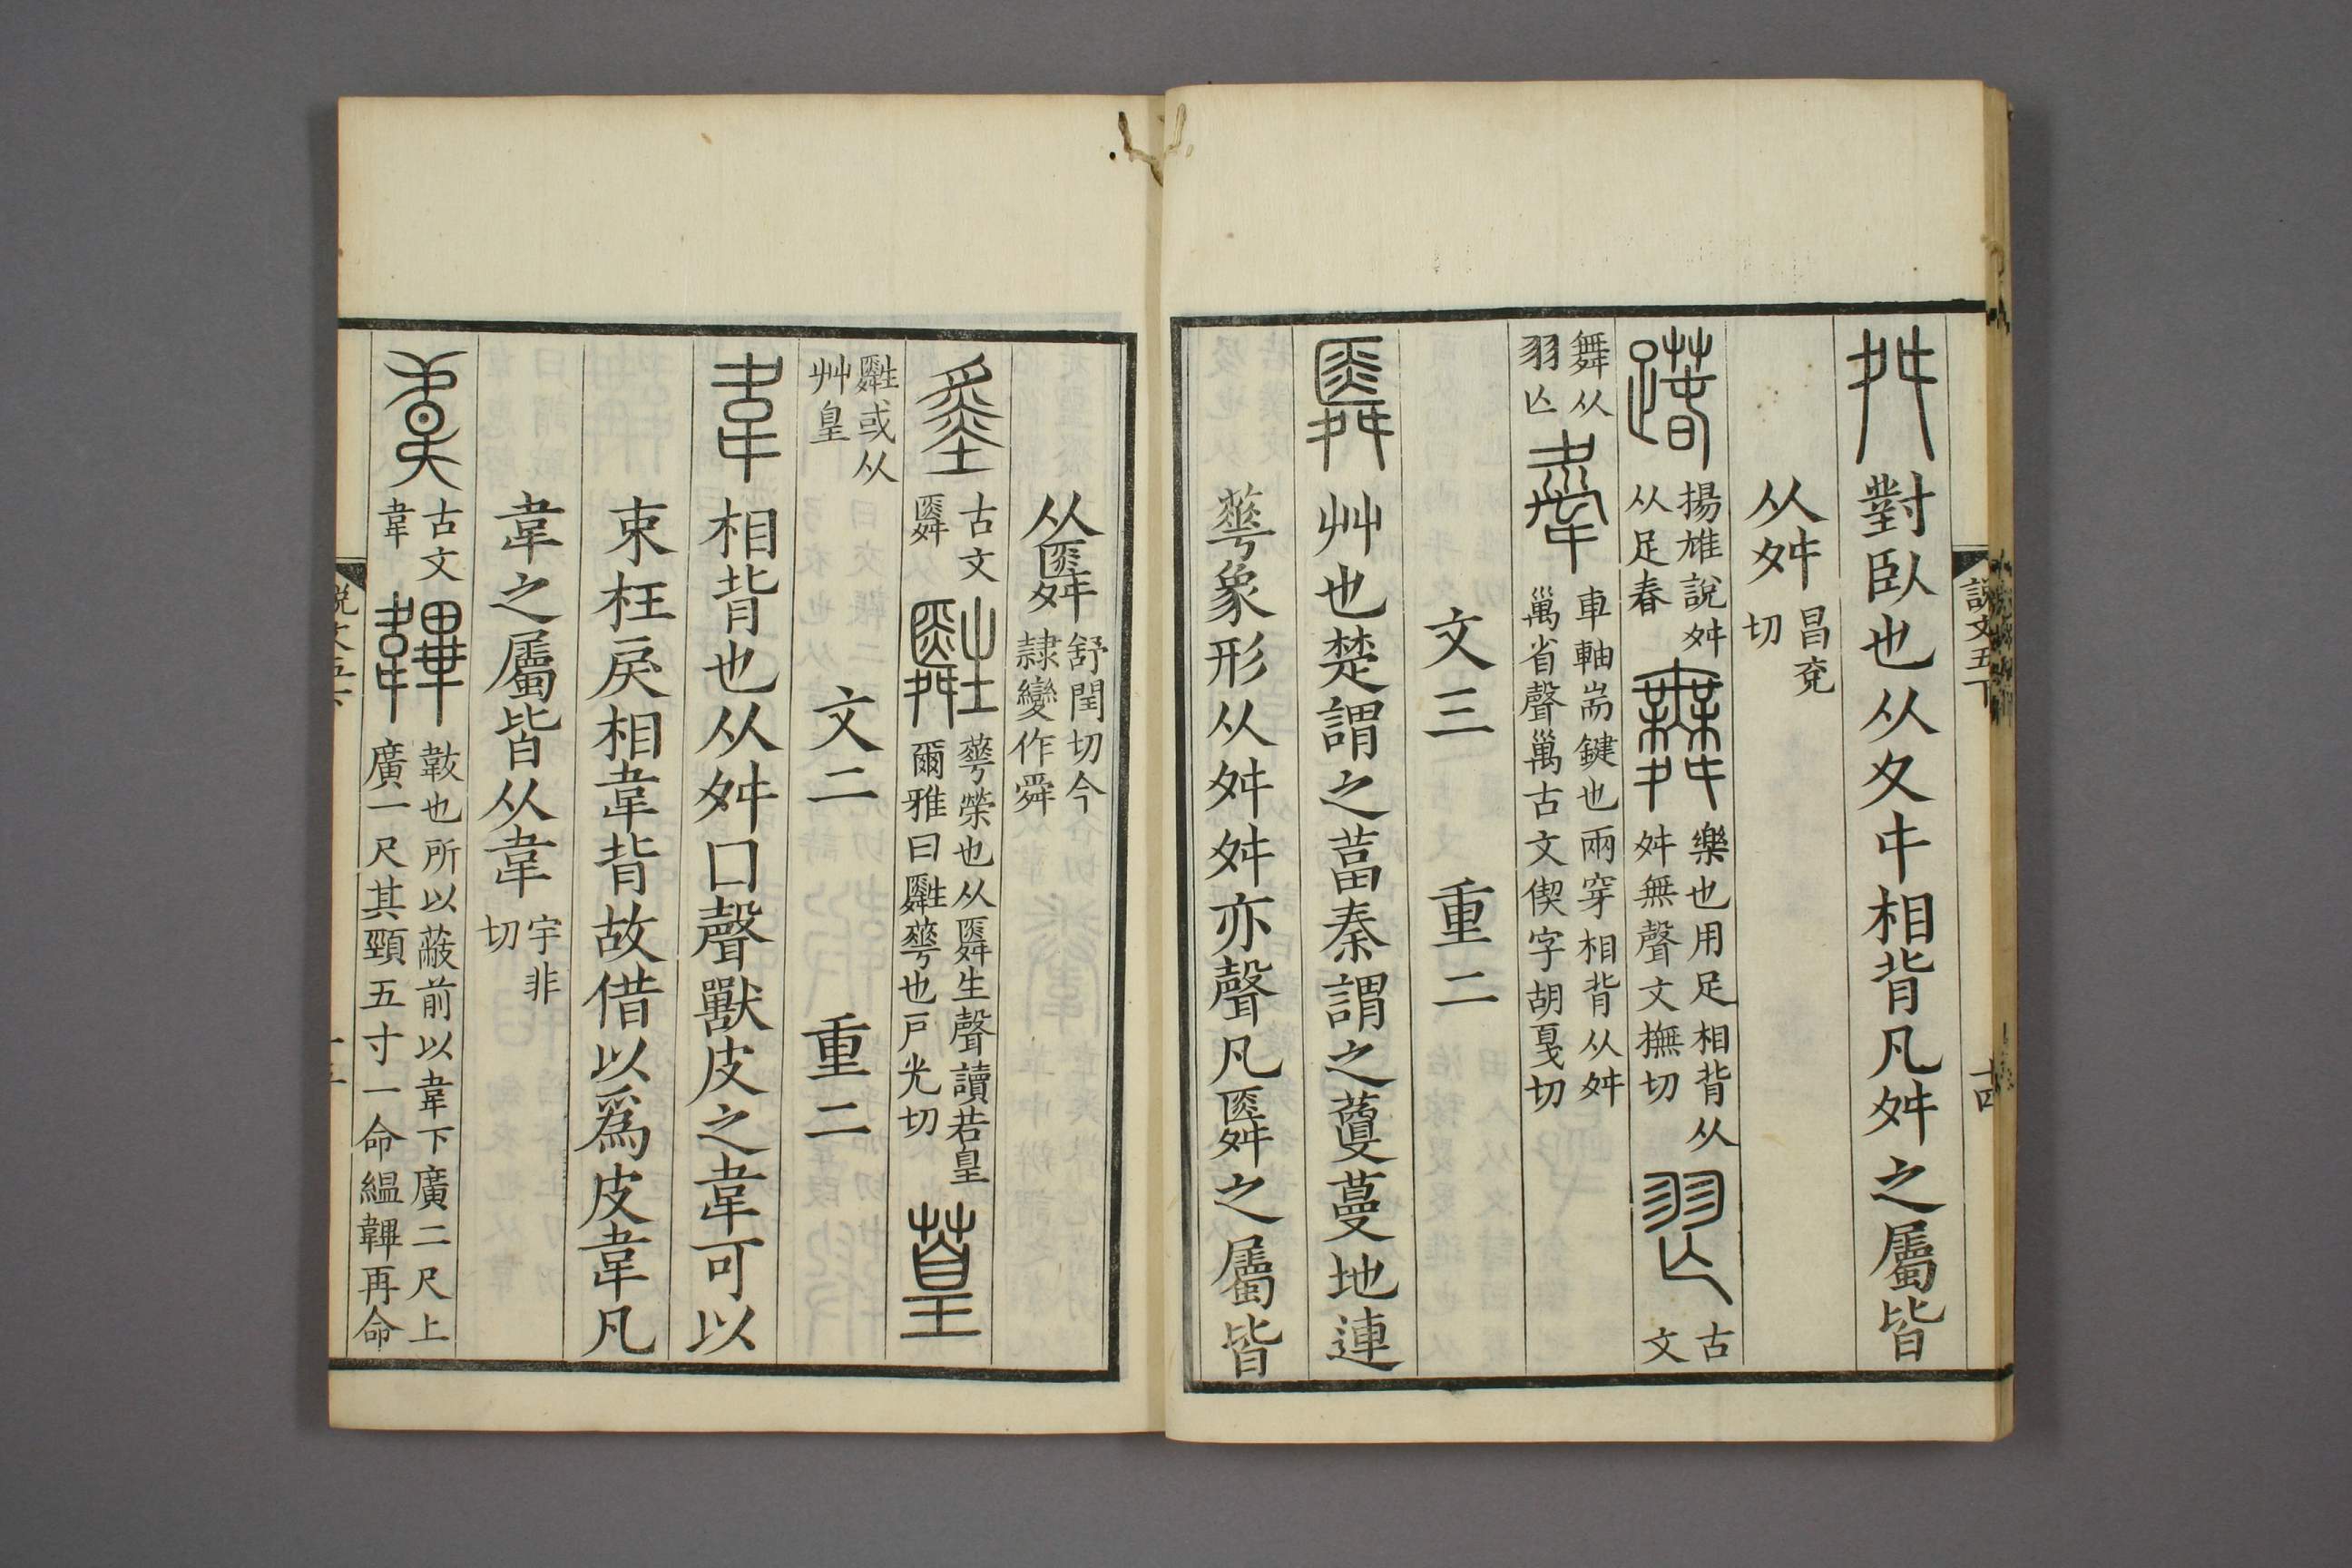 舛對臥也从夊㐄相背凡舛之屬皆
从舛昌兖切
踳揚雄說舛从足春舞樂也用足相背从舛無聲文撫切𦐀古文
舞从羽亾舝車軸耑鍵也兩穿相背从舛𥜿省聲𥜿古文偰字胡戛切
文三 重二
䑞艸也楚謂之葍秦謂之藑蔓地連
蕐象形从舛舛亦聲凡䑞之屬皆
从䑞舒閏切今隸變作舜
古文䑞 蕐榮也从䑞生聲讀若皇爾雅曰 蕐也戸光切葟
或从艸皇 文二 重二
韋相背也从舛囗聲獸皮之韋可以
束枉戾相韋背故借以爲皮韋凡
韋之屬皆从韋宇非切
古文韋韠韍也所以蔽前以韋下廣二尺上廣一尺其頸五寸一命縕韠再命
說文五下
十四